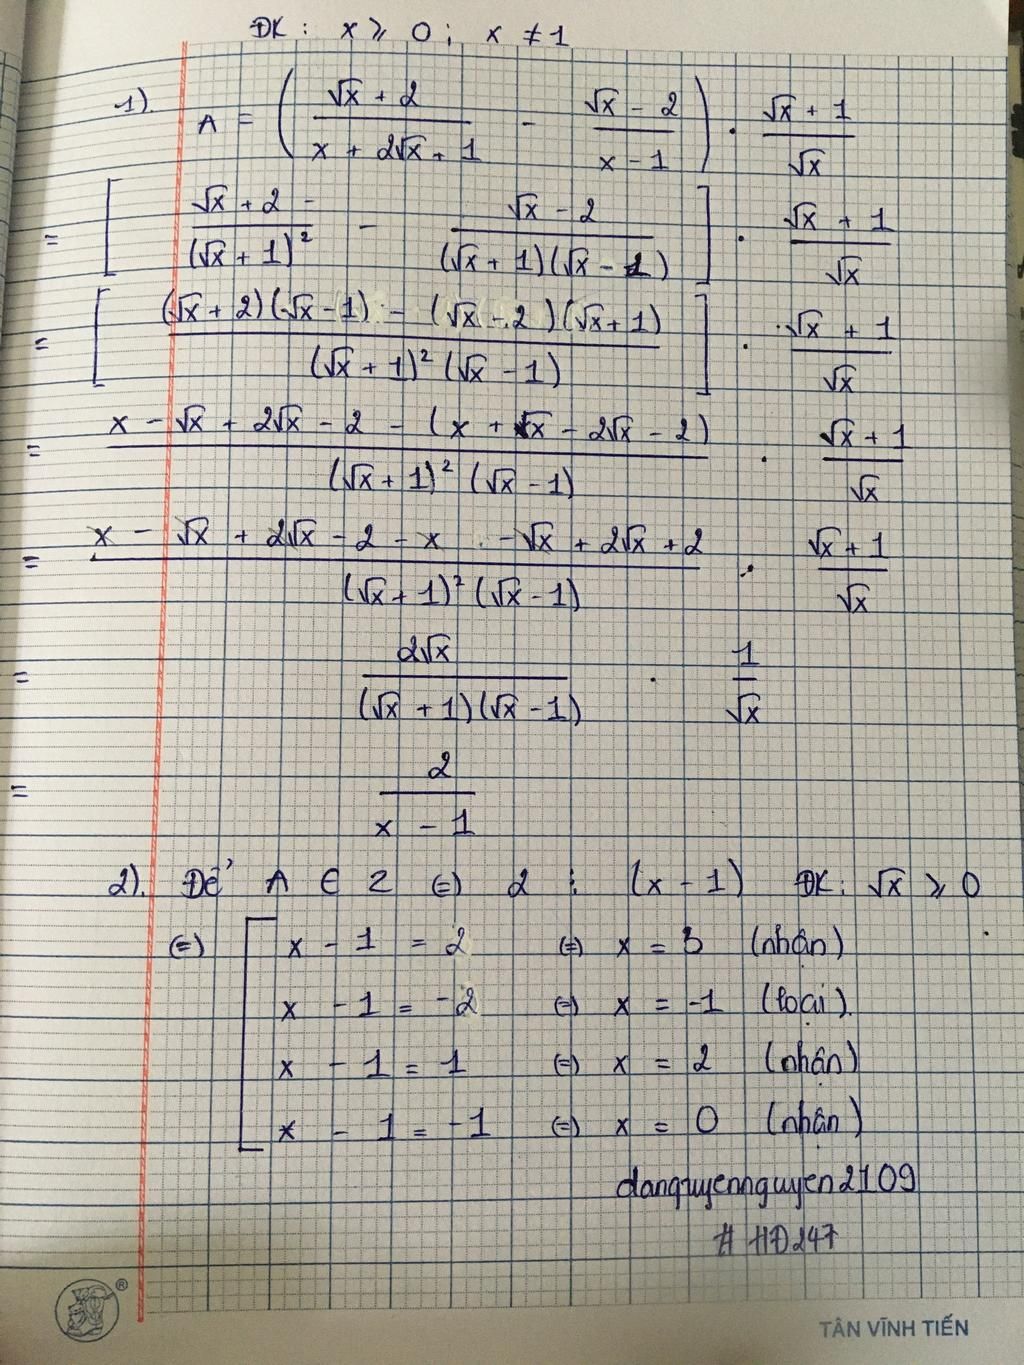 ĐK : x ⩾ 0 ; x ≠ 1
1) A = ( (√x + 2)/(x + 2√x + 1) - (√x - 2)/(x - 1) ) . (√x + 1)/√x
= [ (√x + 2)/(√x + 1)² - (√x - 2)/((√x + 1)(√x - 1)) ] . (√x + 1)/√x
= [ ((√x + 2)(√x - 1) - (√x - 2)(√x + 1))/((√x + 1)² (√x - 1)) ] . (√x + 1)/√x
= (x - √x + 2√x - 2 - (x + √x - 2√x - 2))/((√x + 1)² (√x - 1)) . (√x + 1)/√x
= (x - √x + 2√x - 2 - x - √x + 2√x + 2)/((√x + 1)² (√x - 1)) . (√x + 1)/√x
= 2√x/((√x + 1)(√x - 1)) . 1/√x
= 2/(x - 1)
2). Để A ∈ Z (=) 2 ⋮ (x - 1) ĐK : √x ⩾ 0
(=) [ x - 1 = 2 (=) x = 3 (nhận)
x - 1 = -2 (=) x = -1 (loại).
x - 1 = 1 (=) x = 2 (nhận)
x - 1 = -1 (=) x = 0 (nhận)
danquyennguyen2109
# HĐ247
®
TÂN VĨNH TIẾN